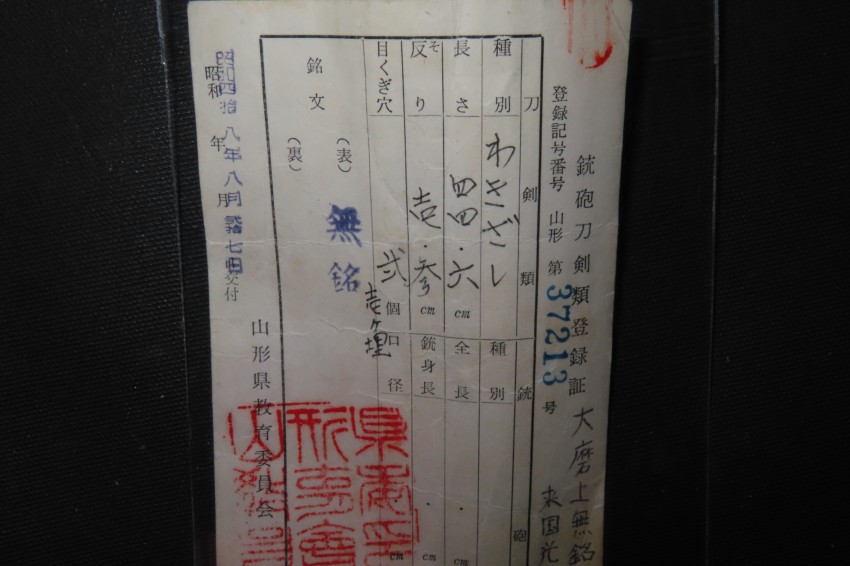 銃砲刀剣類登録証 大磨上無銘
来国光
登録記号番号 山形 第 37213 号
刀剣類 銃砲
種別 わきざし 種別
長さ 四四・六 cm 全長 ・ cm
そり 反り 壱・参 cm 銃身長 ・ cm
目くぎ穴 弐 個 口径 cm
壱ヶ埋
銘文 (表) 無銘
(裏)
山形県教育委員会
昭和四拾八年八月弐拾七日
昭和 年 月 交付